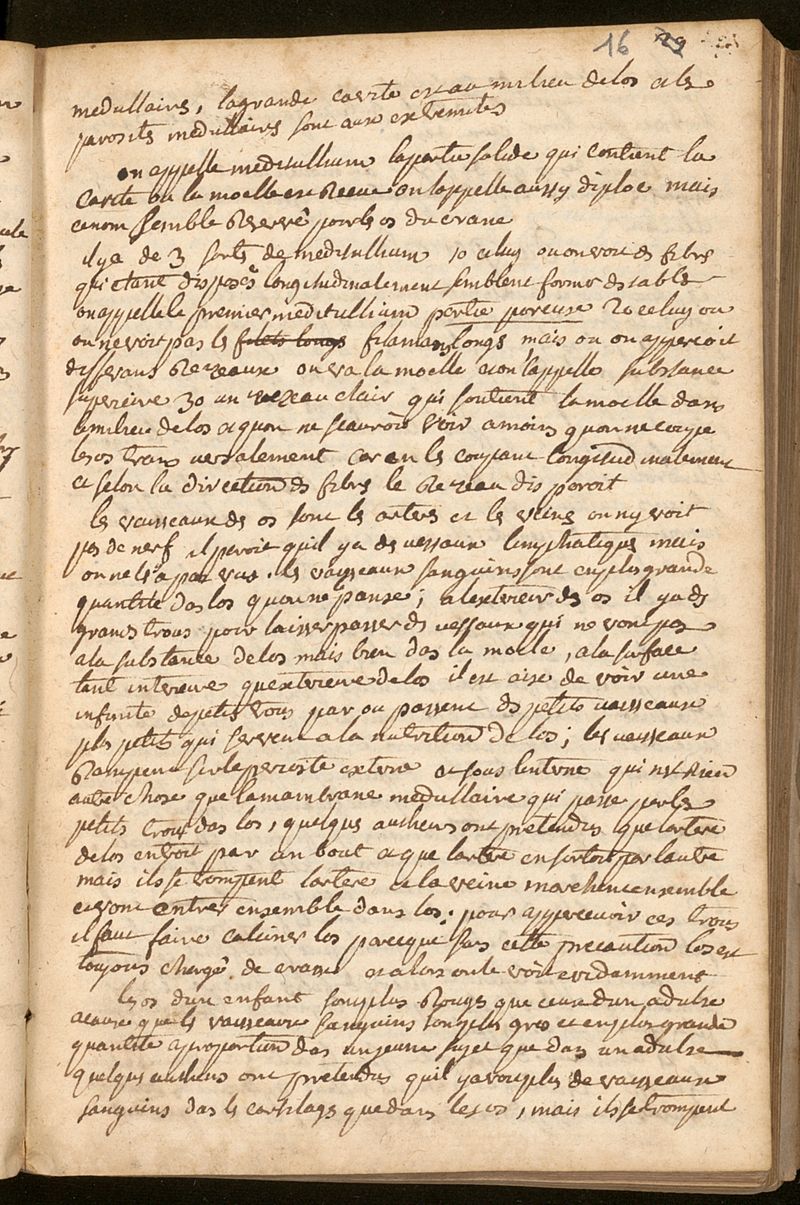 16 29
medullaires, la grande cavite est au milieu de los et les
porosites medullaires sont aux extremites
on appelle meditullium la partie solide qui contient la
cavite ou la moelle est receue on lappelle aussy diploe mais
ce nom semble reservé pour les os du crane
il y a de 3 sorts de meditullium 10 celuy ou on voit ds fibrs
qui etant disposés longitudinalement semblent former ds table
on appelle le premier meditullium partie poreuse 20 celuy ou
on ne voit pas ls filets longs filamans longs mais ou on apperçoit
differans rezeaux ou va la moelle et on lappelle substance
30 un rezeau clair qui soutient la moelle dans
le milieu de los et quon ne scauroit voir a moins quon ne coupe
les os transversalement car en ls coupant longitudinalement
et selon la direction ds fibrs le rezeau disparoit
les vaisseaux ds os sont ls arters et ls veins on ny voit
pas de nerf il paroit quil y a ds vessaux limphatiqus mais
on ne ls a pas vus. ls vaysseaux sanguins sont en plus grande
quantité das los quon ne panse; a lexterieur ds os il y a ds
grands trous pour laisser passer ds vessaux qui ne vont pas
a la substance de los mais bien das la moele, a la surface
tant interieure quexterieure de los il est aise de voir une
infinite de petits trous par ou passent ds petits vaisseaux
plus petits qui servent a la nutrition de los; les vaisseaux
rampent sur le perioste externe et sous linterne qui nest rien
autre chose que la mambrane medullaire qui passe par ls
petits trous das los, quelqus autheurs ont pretendus que lartere
de los entroit par un bout et que lartere en sortoit par lautre
mais ils se trompent lartere et la veine marchent ensemble
et vont entrer ensemble dans los. pour appercevoir ces trous
il faut faire calciner los parceque sans cette precaution los est
toujours chargé de crasse et alors on le voit evidamment
les os dun enfant sont plus rougs que ceux dun adulte
acause que ls vaisseaux sanguins sont plus gros et en plus grande
quantite a proportion das un jeune sujet que das un adulte
quelqus autheurs ont pretendus quil y avoit plus de vaisseaux
sanguins das ls cartilags que dans les os, mais ils se trompent